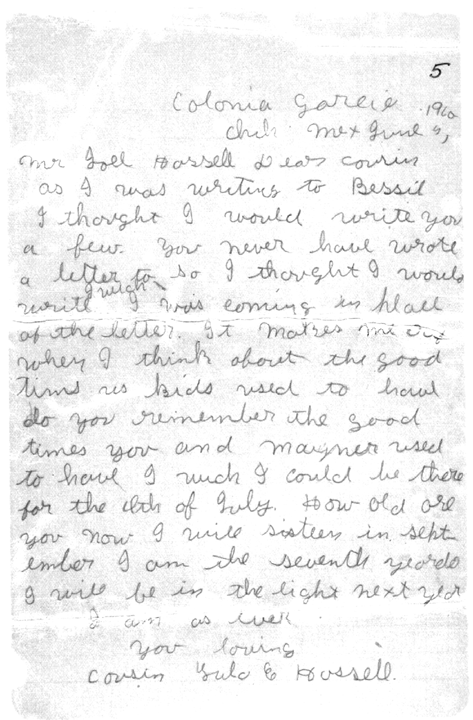 5
Colonia Garcia 1910
Chih. Mex June 9,
Mr Joel Hassell Dear cousin
as I was writing to Bessil
I thought I would write you
a few. You never have wrote
a letter to so I thought I would
I wich
write I was coming in place
of the letter. It makes me cry
when I think about the good
tims us kids used to have
do you remember the good
times you and used
to have I wich I could be there
for the 4th of July. How old are
you now I will sixteen in sept
ember I am the seventh
I will be in the eight next year
I am as ever
you loving
Cousin E Hassell.